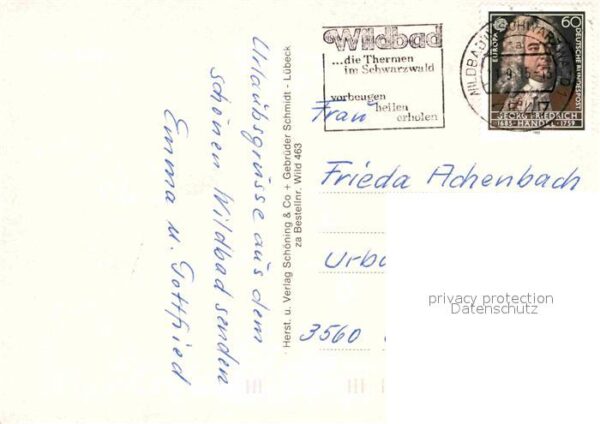 Urlaubsgrüsse aus dem
schönen Wildbad senden
Emma u. Gottfried
Herst. u. Verlag Schöning & Co + Gebrüder Schmidt - Lübeck
za Bestellnr. Wild 463
Wildbad
...die Thermen
im Schwarzwald
vorbeugen
heilen
erholen
60
EUROPA
DEUTSCHE BUNDESPOST
GEORG FRIEDRICH
HÄNDEL
1685 - 1759
Frau
Frieda Achenbach
Urba
3560
privacy protection
Datenschutz